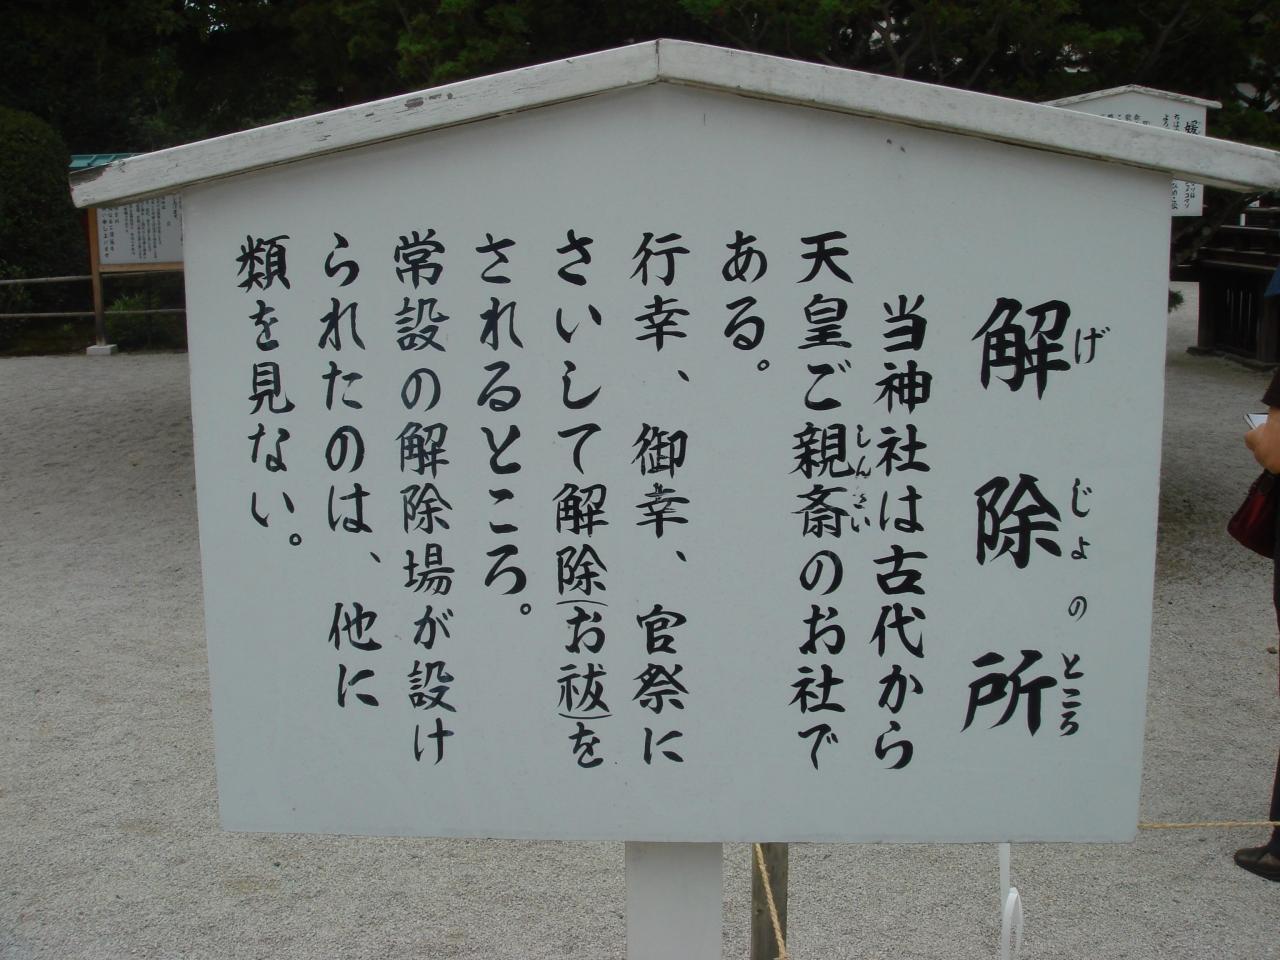 解除所
げじょのところ
当神社は古代から
天皇ご親斎のお社で
しんさい
ある。
行幸、御幸、官祭に
さいして解除(お祓)を
されるところ。
常設の解除場が設け
られたのは、他に
類を見ない。